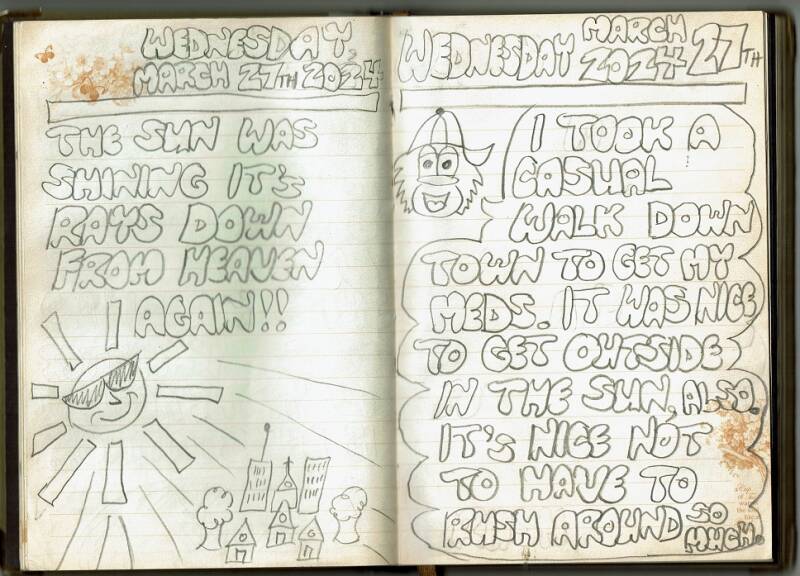 WEDNESDAY,
MARCH 27TH 2024
THE SUN WAS
SHINING IT'S
RAYS DOWN
FROM HEAVEN
AGAIN!!
WEDNESDAY MARCH 27TH
2024
I TOOK A
CASUAL
WALK DOWN
TOWN TO GET MY
MEDS. IT WAS NICE
TO GET OUTSIDE
IN THE SUN. ALSO.
IT'S NICE NOT
TO HAVE TO
RUSH AROUND SO
MUCH.